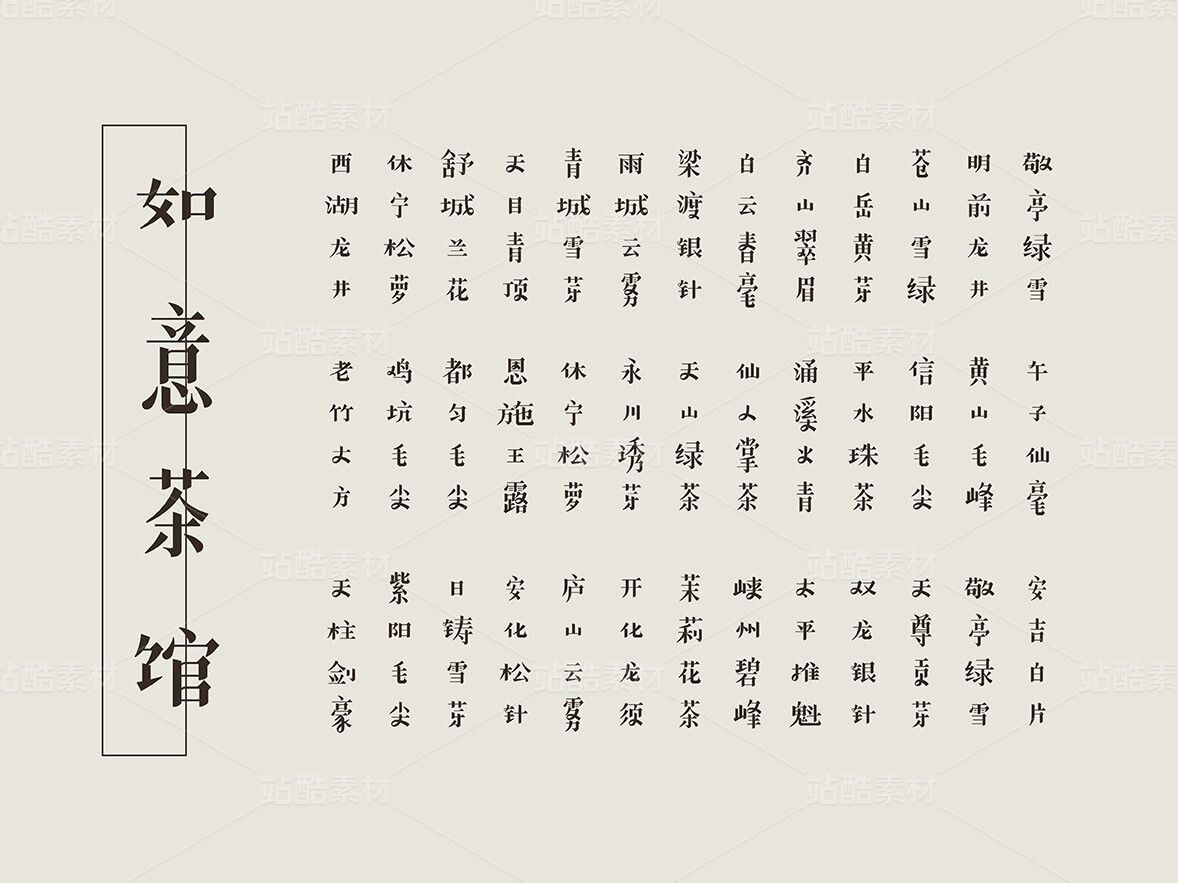 如意茶馆
西湖龙井
休宁松萝
舒城兰花
天目青顶
青城雪芽
雨城云雾
梁渡银针
白云春毫
齐山翠眉
白岳黄芽
苍山雪绿
明前龙井
敬亭绿雪
老竹大方
鸡坑毛尖
都匀毛尖
恩施王露
休宁松萝
永川秀芽
天山绿茶
仙人掌茶
涌溪火青
平水珠茶
信阳毛尖
黄山毛峰
午子仙毫
天柱剑豪
紫阳毛尖
日铸雪芽
安化松针
庐山云雾
开化龙须
茉莉花茶
峡州碧峰
太平推魁
双龙银针
天尊贡芽
敬亭绿雪
安吉白片
站酷素材